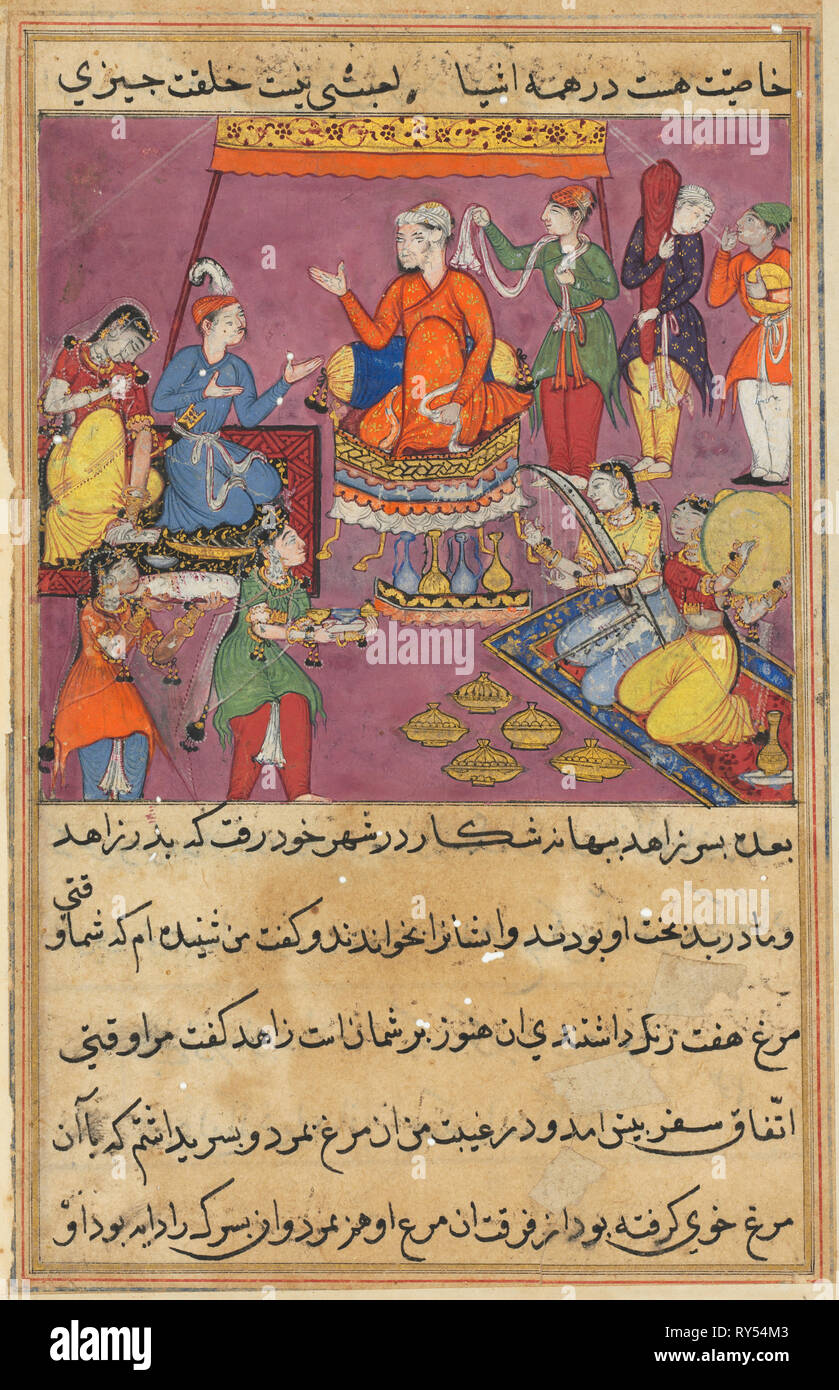 خاصیت هست در همه اشیا لعبثی نیست خلقت چیزی
بعده بسر زاهد ببهانه شکار در شهر خود رفت که بذر زاهد
قتی
و مادر بدبخت او بودند و ایشانرا بخواندند و کفت من شنیده ام که شما و
مرغ هفت رنک داشته ای ان هنوز بر شمان است زاهد کفت مرا وقتی
اتّفاق سفر بیش امد و در غیبت من ان مرغ بمرد و بسرید اشتم که باآن
مرغ خوی کرفته بود از فرقت ان مرغ او هم بمرد و ان بسرک را دایه بود او
alamy
a
alamy
Image ID: RY54M3
www.alamy.com